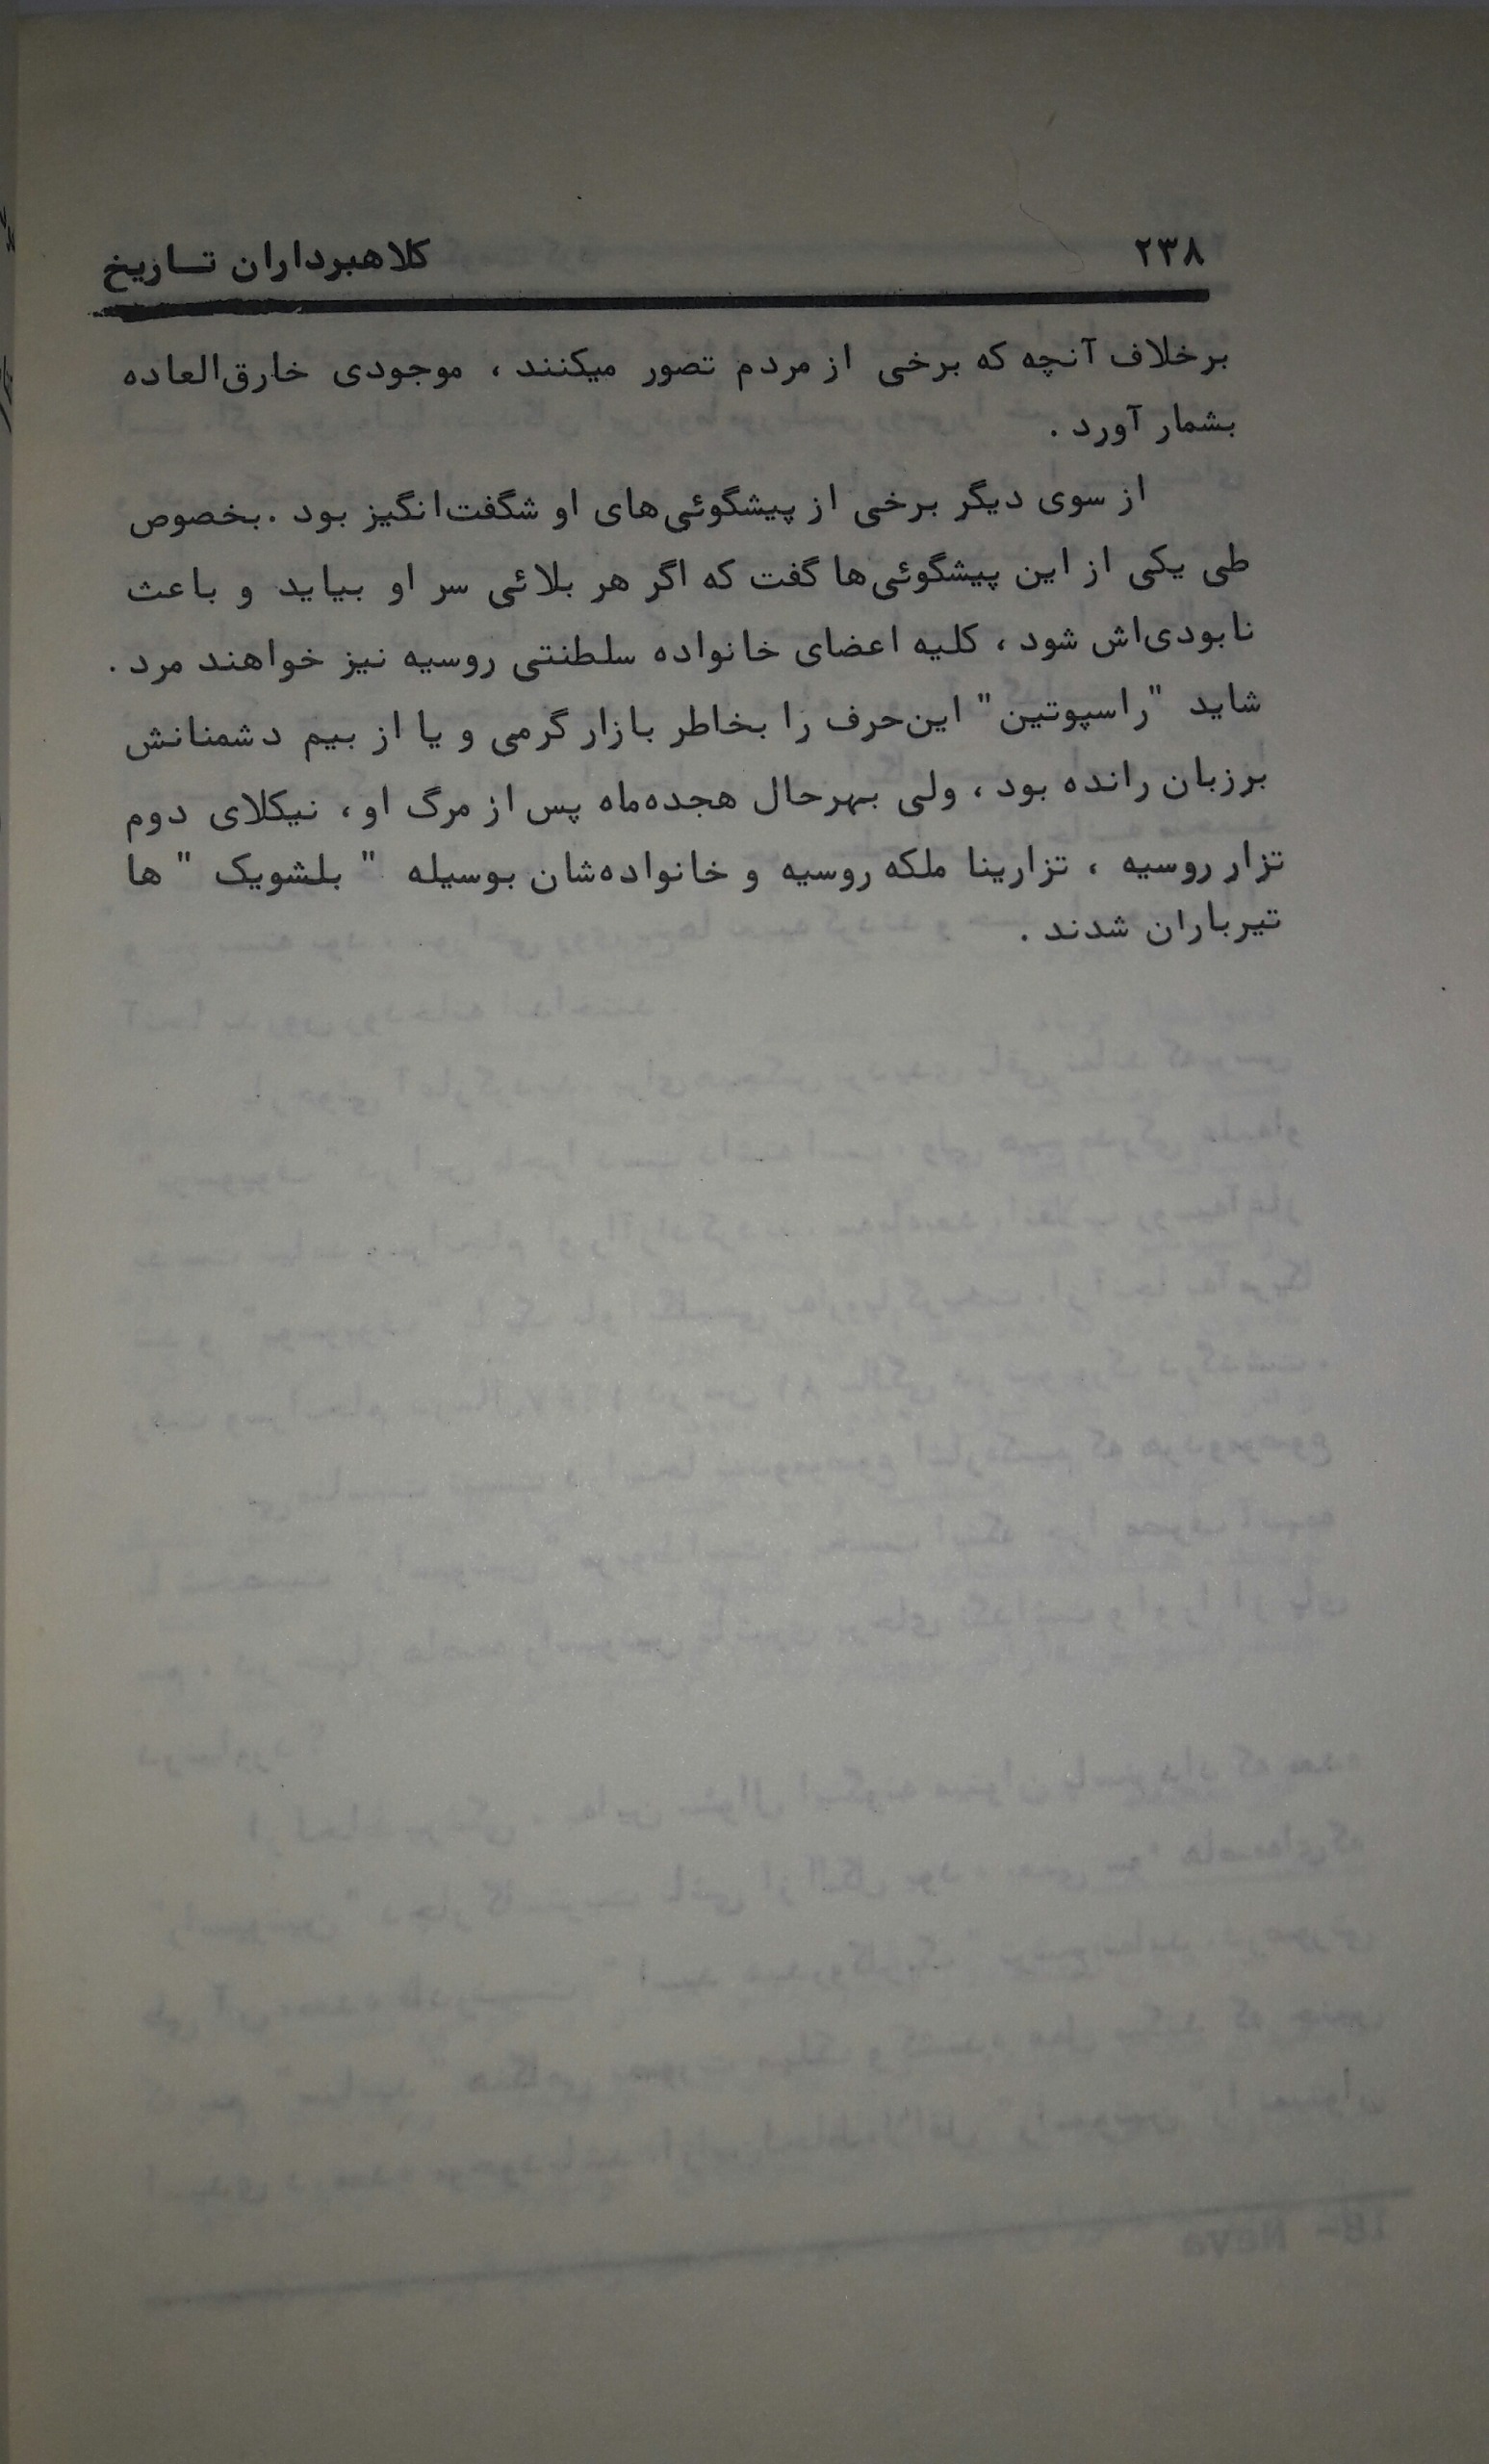 ۲۳۸
کلاهبرداران تاریخ
برخلاف آنچه که برخی از مردم تصور میکنند ، موجودی خارق‌العاده
بشمار آورد .
از سوی دیگر برخی از پیشگوئی‌های او شگفت‌انگیز بود .بخصوص
طی یکی از این پیشگوئی‌ها گفت که اگر هر بلائی سر او بیاید و باعث
نابودی‌اش شود ، کلیه اعضای خانواده سلطنتی روسیه نیز خواهند مرد .
شاید "راسپوتین" این‌حرف را بخاطر بازار گرمی و یا از بیم دشمنانش
برزبان رانده بود ، ولی بهرحال هجده‌ماه پس از مرگ او ، نیکلای دوم
تزار روسیه ، تزارینا ملکه روسیه و خانواده‌شان بوسیله " بلشویک " ها
تیرباران شدند .